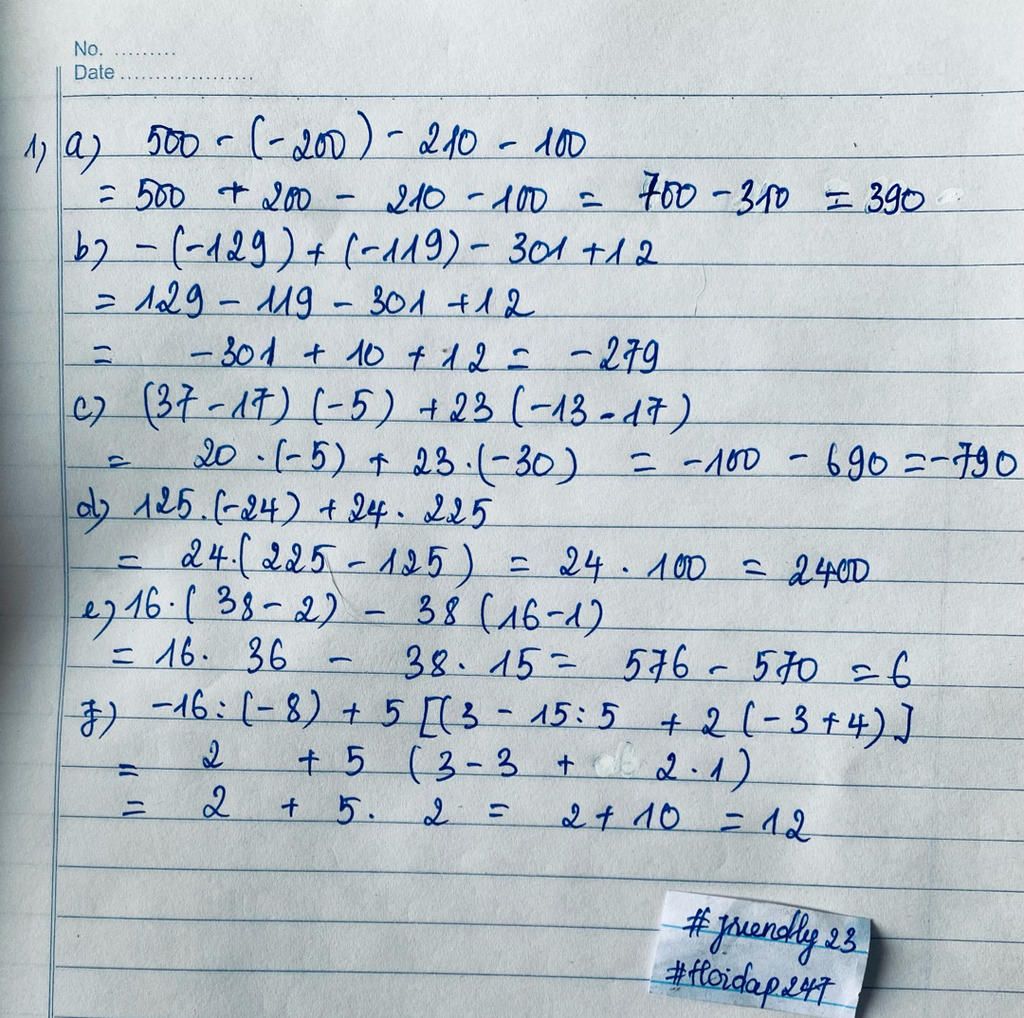 No. .........
Date ...................
1, a) 500 - (-200) - 210 - 100
= 500 + 200 - 210 - 100 = 700 - 310 = 390
b) - (-129) + (-119) - 301 + 12
= 129 - 119 - 301 + 12
= -301 + 10 + 12 = -279
c) (37 - 17) (-5) + 23 (-13 - 17)
= 20 . (-5) + 23 . (-30) = -100 - 690 = -790
d) 125. (-24) + 24. 225
= 24. (225 - 125) = 24 . 100 = 2400
e) 16. (38 - 2) - 38 (16 - 1)
= 16. 36 - 38. 15 = 576 - 570 = 6
f) -16 : (-8) + 5 [(3 - 15 : 5 + 2 (-3 + 4)]
= 2 + 5 (3 - 3 + 2 . 1)
= 2 + 5. 2 = 2 + 10 = 12
# friendly 23
#hoidap247